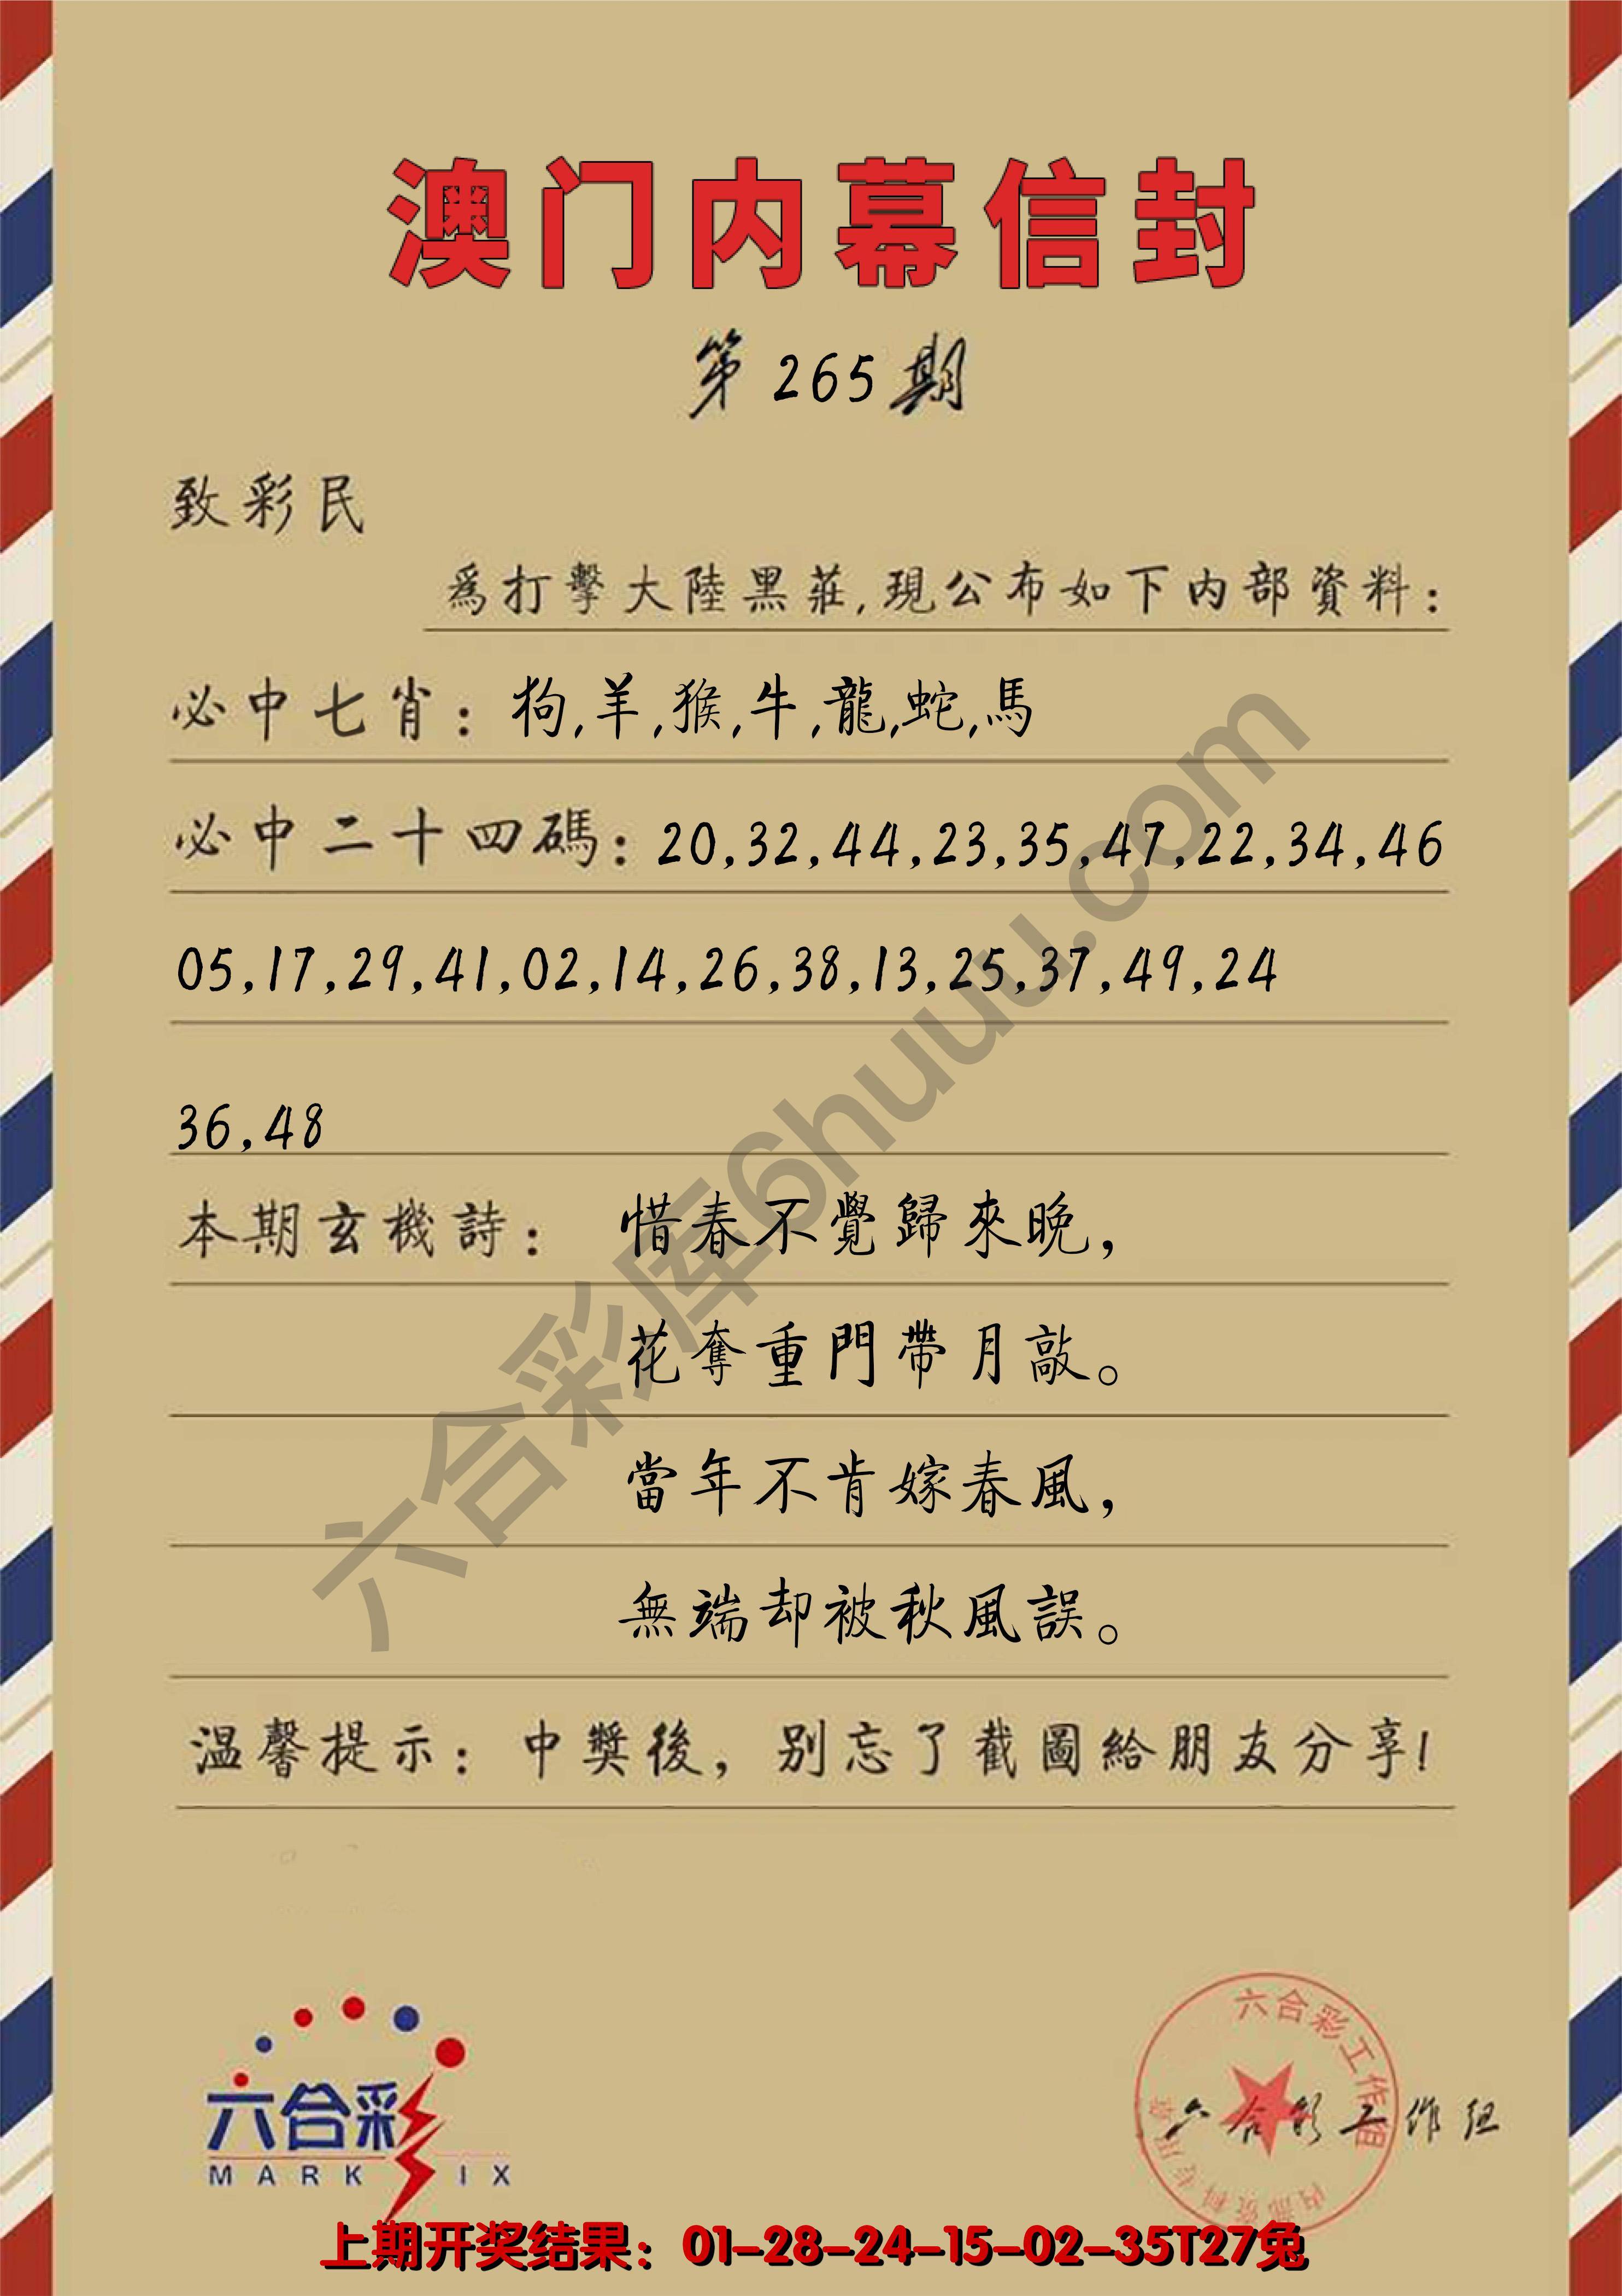 澳门内幕信封
第265期
致彩民
爲打擊大陸黑莊,現公布如下内部資料:
必中七肖: 狗,羊,猴,牛,龍,蛇,馬
必中二十四碼: 20,32,44,23,35,47,22,34,46
05,17,29,41,02,14,26,38,13,25,37,49,24
36,48
本期玄機詩: 惜春不覺歸來晚,
花奪重門帶月敲。
當年不肯嫁春風,
無端却被秋風誤。
温馨提示: 中獎後, 别忘了截圖給朋友分享!
六合彩库6huuu.com
六合彩
MARK IX
六合彩工作组
内部资料专用章
六合彩工作组
上期开奖结果: 01-28-24-15-02-35T27兔